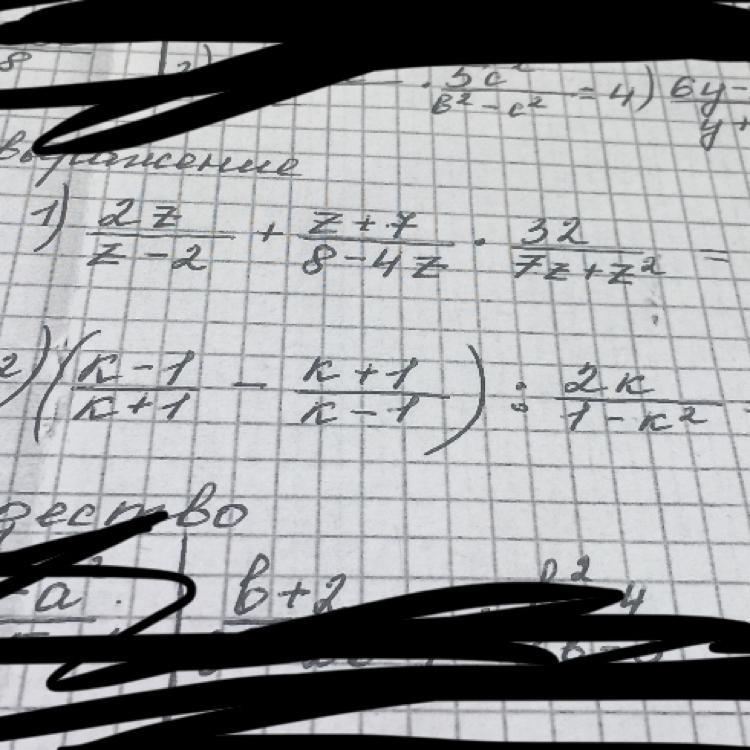 8 2) · 5c² / b² - c² = 4) 6y - / y +
выражение
1) 2z / z - 2 + z + 7 / 8 - 4z · 32 / 7z + z² =
2) (k - 1 / k + 1 - k + 1 / k - 1) : 2k / 1 - k²
ество
- a b + 2 4